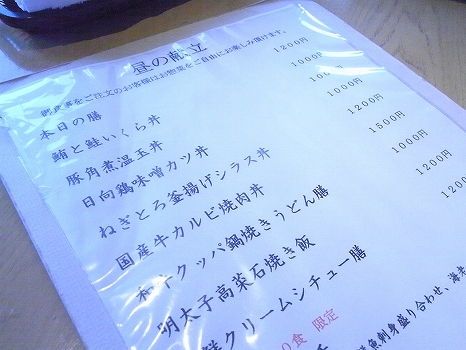 昼の献立
御食事をご注文のお客様はお惣菜をご自由にお楽しみ頂けます。
本日の膳 1200円
鮪と鮭いくら丼 1000円
豚角煮温玉丼
日向鶏味噌カツ丼 1000円
ねぎとろ釜揚げシラス丼 1200円
国産牛カルビ焼肉丼 1500円
和牛クッパ鍋焼きうどん膳 1000円
明太子高菜石焼き飯 1200円
クリームシチュー膳 1200
り食 限定
魚刺身盛り合わせ、海老